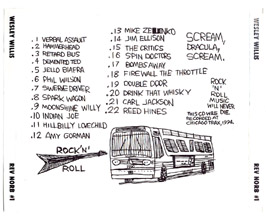 WESLEY WILLIS
.1 VERBAL ASSAULT
.2 HAMMERHEAD
.3 RETARD BUS
.4 DEMENTED TED
.5 JELLO BIAFRA
.6 PHIL WILSON
.7 SWERVE DRIVER
.8 SPARK WAGON
.9 MOONSHINE WILLY
.10 INDIAN JOE
.11 HILLBILLY LOVECHILD
.12 AMY GORMAN
.13 MIKE ZELENKO
.14 JIM ELLISON
.15 THE CRITICS
.16 SPIN DOCTORS
.17 BOMBS AWAY
.18 FIREWALL THE THROTTLE
.19 DOUBLE DOOR
.20 DRINK THAT WHISKY
.21 CARL JACKSON
.22 REED HINES
SCREAM,
DRACULA,
SCREAM.
ROCK
'N'
ROLL
MUSIC
WILL NEVER
DIE
THIS CD WAS
RECORDED AT
CHICAGO TRAX, 1994.
ROCK 'N'
ROLL
REV NORB #1
WESLEY WILLIS
REV NORB #1